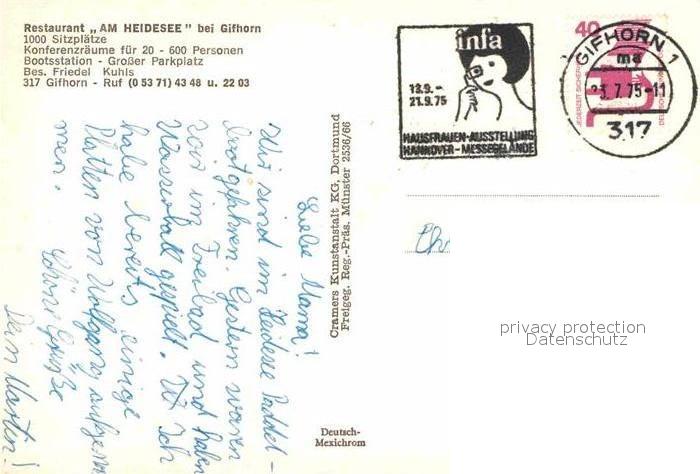 Restaurant „AM HEIDESEE" bei Gifhorn
1000 Sitzplätze
Konferenzräume für 20 - 600 Personen
Bootsstation - Großer Parkplatz
Bes. Friedel Kuhls
317 Gifhorn - Ruf (0 53 71) 43 48 u. 22 03
infa
13.9. –
21.9.75
HAUSFRAUEN-AUSSTELLUNG
HANNOVER - MESSEGELÄNDE
40
JEDERZEIT SICHERHEIT
GIFHORN 1
ma
3.7.75-11
317
Liebe Mama!
Wir sind im Heidesee Paddel-
boot gefahren. Gestern waren
wir im Freibad und haben
Wasserball gespielt. Ich
habe bereits einige
Platten von Wolfgang aufgenom
men.
Schöne Grüße
Dein Martin!
Cramers Kunstanstalt KG, Dortmund
Freigeg. Reg.-Präs. Münster 2536/66
privacy protection
Datenschutz
Deutsch-
Mexichrom